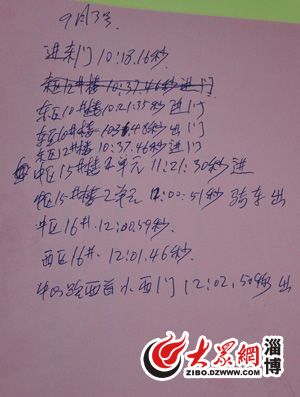 9月3号
进来门 10:18.16秒
东区12#楼 10:37.46秒进门
东区10#楼 10.21:35秒进门
东区10#楼 1036.48秒出门
东区12#楼 10:37.46秒进门
中区15#楼2单元 11:21:30秒进
中区15#楼2单元 12:00:51秒 骑车出
中区16#. 12:00.59秒.
西区16#. 12:01.46秒.
西首小西门 12:02,50秒 出
大众網 淄博
ZIBO.DZWWW.COM